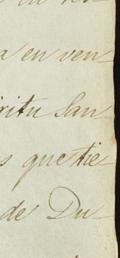 a en ven
ritu San
s que tie
de Du-